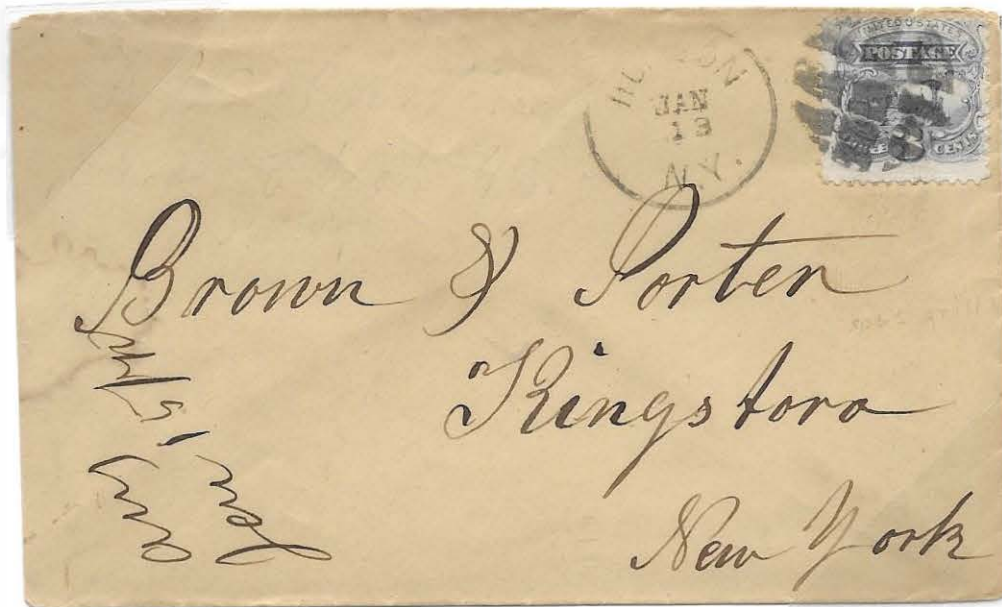 HUDSON
JAN
13
N.Y
UNITED STATES
POSTAGE
CENTS
Brown & Porter
Kingsboro
New York